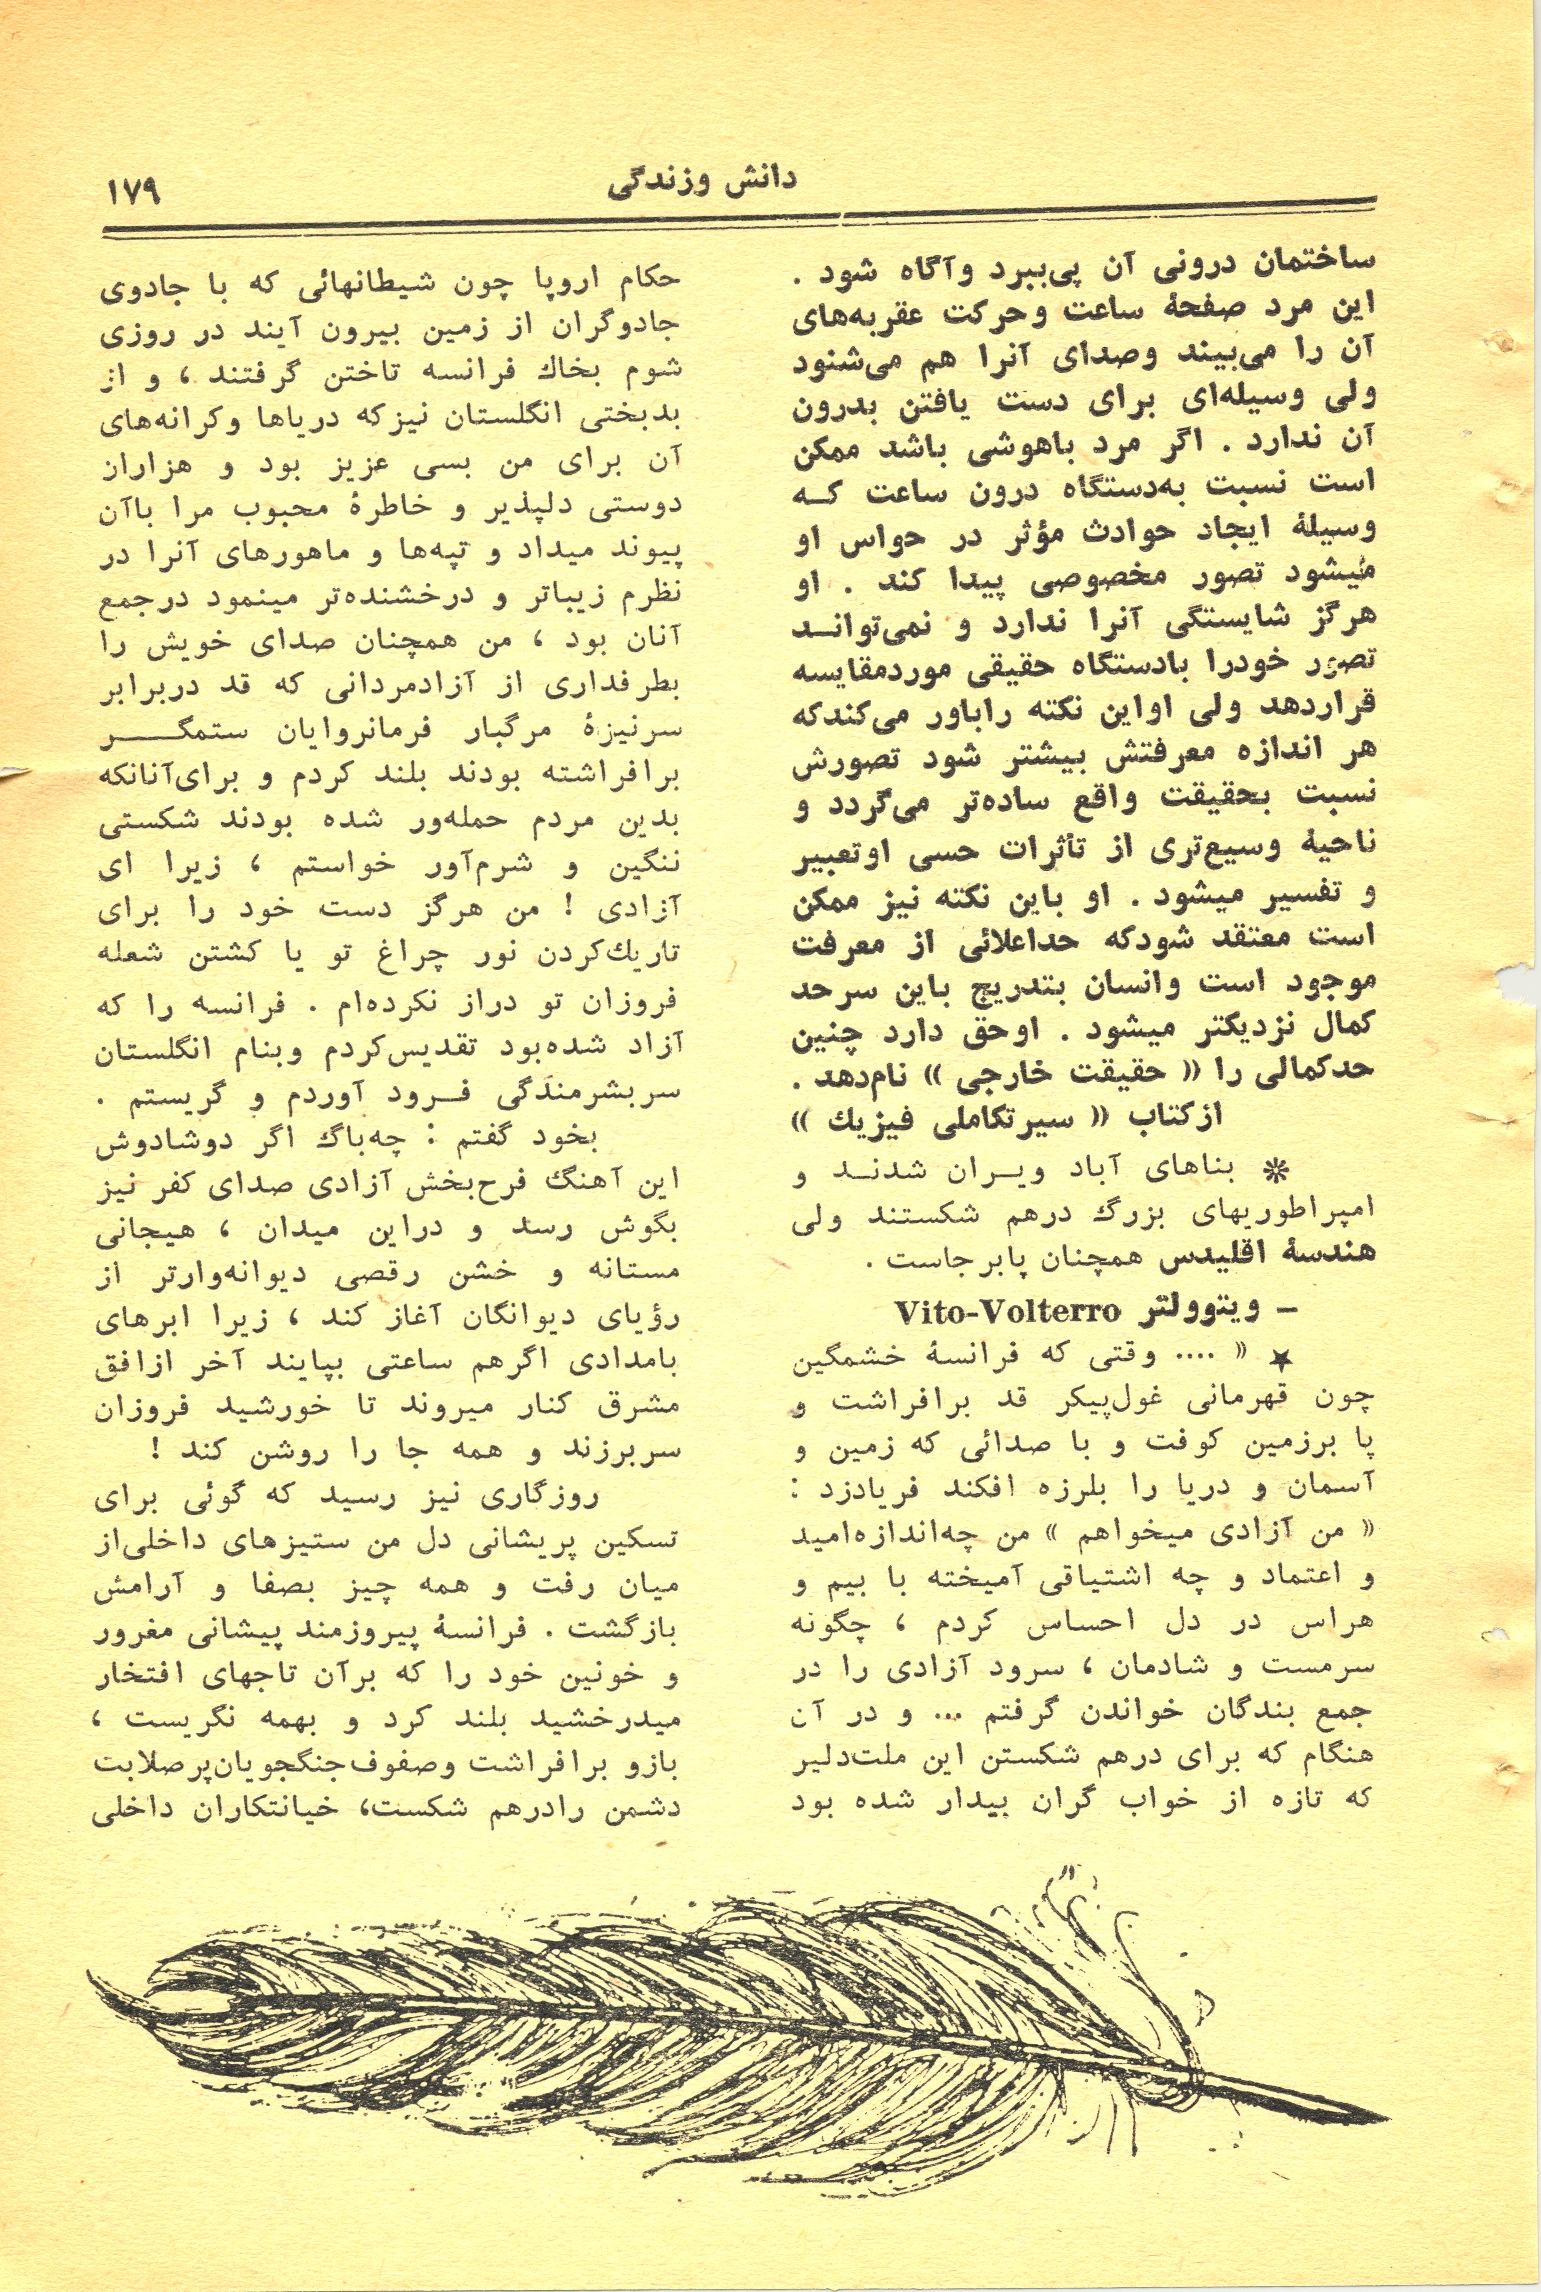 دانش وزندگی
۱۷۹
ساختمان درونی آن پی‌ببرد وآگاه شود .
این مرد صفحهٔ ساعت وحرکت عقربه‌های
آن را می‌بیند وصدای آنرا هم می‌شنود
ولی وسیله‌ای برای دست یافتن بدرون
آن ندارد . اگر مرد باهوشی باشد ممکن
است نسبت به‌دستگاه درون ساعت کــه
وسیلهٔ ایجاد حوادث مؤثر در حواس او
میشود تصور مخصوصی پیدا کند . او
هرگز شایستگی آنرا ندارد و نمی‌توانــد
تصور خودرا بادستگاه حقیقی موردمقایسه
قراردهد ولی اواین نکته راباور می‌کندکه
هر اندازه معرفتش بیشتر شود تصورش
نسبت بحقیقت واقع ساده‌تر می‌گردد و
ناحیهٔ وسیع‌تری از تأثرات حسی اوتعبیر
و تفسیر میشود . او باین نکته نیز ممکن
است معتقد شودکه حداعلائی از معرفت
موجود است وانسان بتدریج باین سرحد
کمال نزدیکتر میشود . اوحق دارد چنین
حدکمالی را « حقیقت خارجی » نام‌دهد .
ازکتاب « سیرتکاملی فیزیك »
❊ بناهای آباد ویــران شدنــد و
امپراطوریهای بزرگ درهم شکستند ولی
هندسهٔ اقلیدس همچنان پابرجاست .
– ویتوولتر Vito-Volterro
★ « .... وقتی که فرانسهٔ خشمگین
چون قهرمانی غول‌پیکر قد برافراشت و
پا برزمین کوفت و با صدائی که زمین و
آسمان و دریا را بلرزه افکند فریادزد :
« من آزادی میخواهم » من چه‌اندازه‌امید
و اعتماد و چه اشتیاقی آمیخته با بیم و
هراس در دل احساس کردم ، چگونه
سرمست و شادمان ، سرود آزادی را در
جمع بندگان خواندن گرفتم ... و در آن
هنگام که برای درهم شکستن این ملت‌دلیر
که تازه از خواب گران بیدار شده بود
حکام اروپا چون شیطانهائی که با جادوی
جادوگران از زمین بیرون آیند در روزی
شوم بخاك فرانسه تاختن گرفتند ، و از
بدبختی انگلستان نیزکه دریاها وکرانه‌های
آن برای من بسی عزیز بود و هزاران
دوستی دلپذیر و خاطرهٔ محبوب مرا باآن
پیوند میداد و تپه‌ها و ماهورهای آنرا در
نظرم زیباتر و درخشنده‌تر مینمود درجمع
آنان بود ، من همچنان صدای خویش را
بطرفداری از آزادمردانی که قد دربرابر
سرنیزهٔ مرگبار فرمانروایان ستمگــــر
برافراشته بودند بلند کردم و برای‌آنانکه
بدین مردم حمله‌ور شده بودند شکستی
ننگین و شرم‌آور خواستم ، زیرا ای
آزادی ! من هرگز دست خود را برای
تاریك‌کردن نور چراغ تو یا کشتن شعله
فروزان تو دراز نکرده‌ام . فرانسه را که
آزاد شده‌بود تقدیس‌کردم وبنام انگلستان
سربشرمندگی فــرود آوردم و گریستم .
بخود گفتم : چه‌باگ اگر دوشادوش
این آهنگ فرح‌بخش آزادی صدای کفر نیز
بگوش رسد و دراین میدان ، هیجانی
مستانه و خشن رقصی دیوانه‌وارتر از
رؤیای دیوانگان آغاز کند ، زیرا ابرهای
بامدادی اگرهم ساعتی بپایند آخر ازافق
مشرق کنار میروند تا خورشید فروزان
سربرزند و همه جا را روشن کند !
روزگاری نیز رسید که گوئی برای
تسکین پریشانی دل من ستیزهای داخلی‌از
میان رفت و همه چیز بصفا و آرامش
بازگشت . فرانسهٔ پیروزمند پیشانی مغرور
و خونین خود را که برآن تاجهای افتخار
میدرخشید بلند کرد و بهمه نگریست ،
بازو برافراشت وصفوف‌جنگجویان‌پرصلابت
دشمن رادرهم شکست، خیانتکاران داخلی